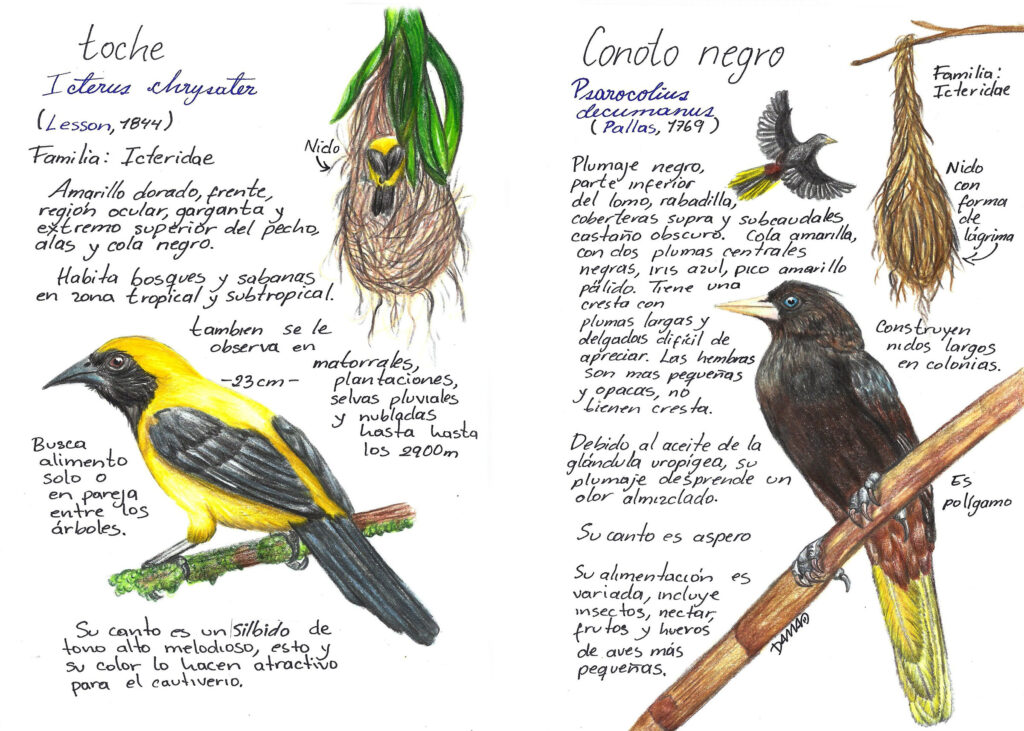 toche
Icterus chrysater
(Lesson, 1844)
Familia: Icteridae
Nido
Amarillo dorado, frente,
región ocular, garganta y
extremo superior del pecho,
alas y cola negro.
Habita bosques y sabanas
en zona tropical y subtropical.
tambien se le
observa en
matorrales,
plantaciones,
selvas pluviales
y nubladas
hasta hasta
los 2900m
-23cm-
Busca
alimento
solo o
en pareja
entre los
árboles.
Su canto es un silbido de
tono alto melodioso, esto y
su color lo hacen atractivo
para el cautiverio.
Conoto negro
Psarocolius
decumanus
(Pallas, 1769)
Familia:
Icteridae
Plumaje negro,
parte inferior
del lomo, rabadilla,
coberteras supra y subcaudales
castaño obscuro. Cola amarilla,
con dos plumas centrales
negras, iris azul, pico amarillo
pálido. Tiene una
cresta con
plumas largas y
delgadas difícil de
apreciar. Las hembras
son mas pequeñas
y opacas, no
tienen cresta.
Nido
con
forma
de
lágrima
Construyen
nidos largos
en colonias.
Debido al aceite de la
glándula uropígea, su
plumaje desprende un
olor almizclado.
Es
polígamo
Su canto es aspero
Su alimentación es
variada, incluye
insectos, nectar,
frutos y huevos
de aves más
pequeñas.